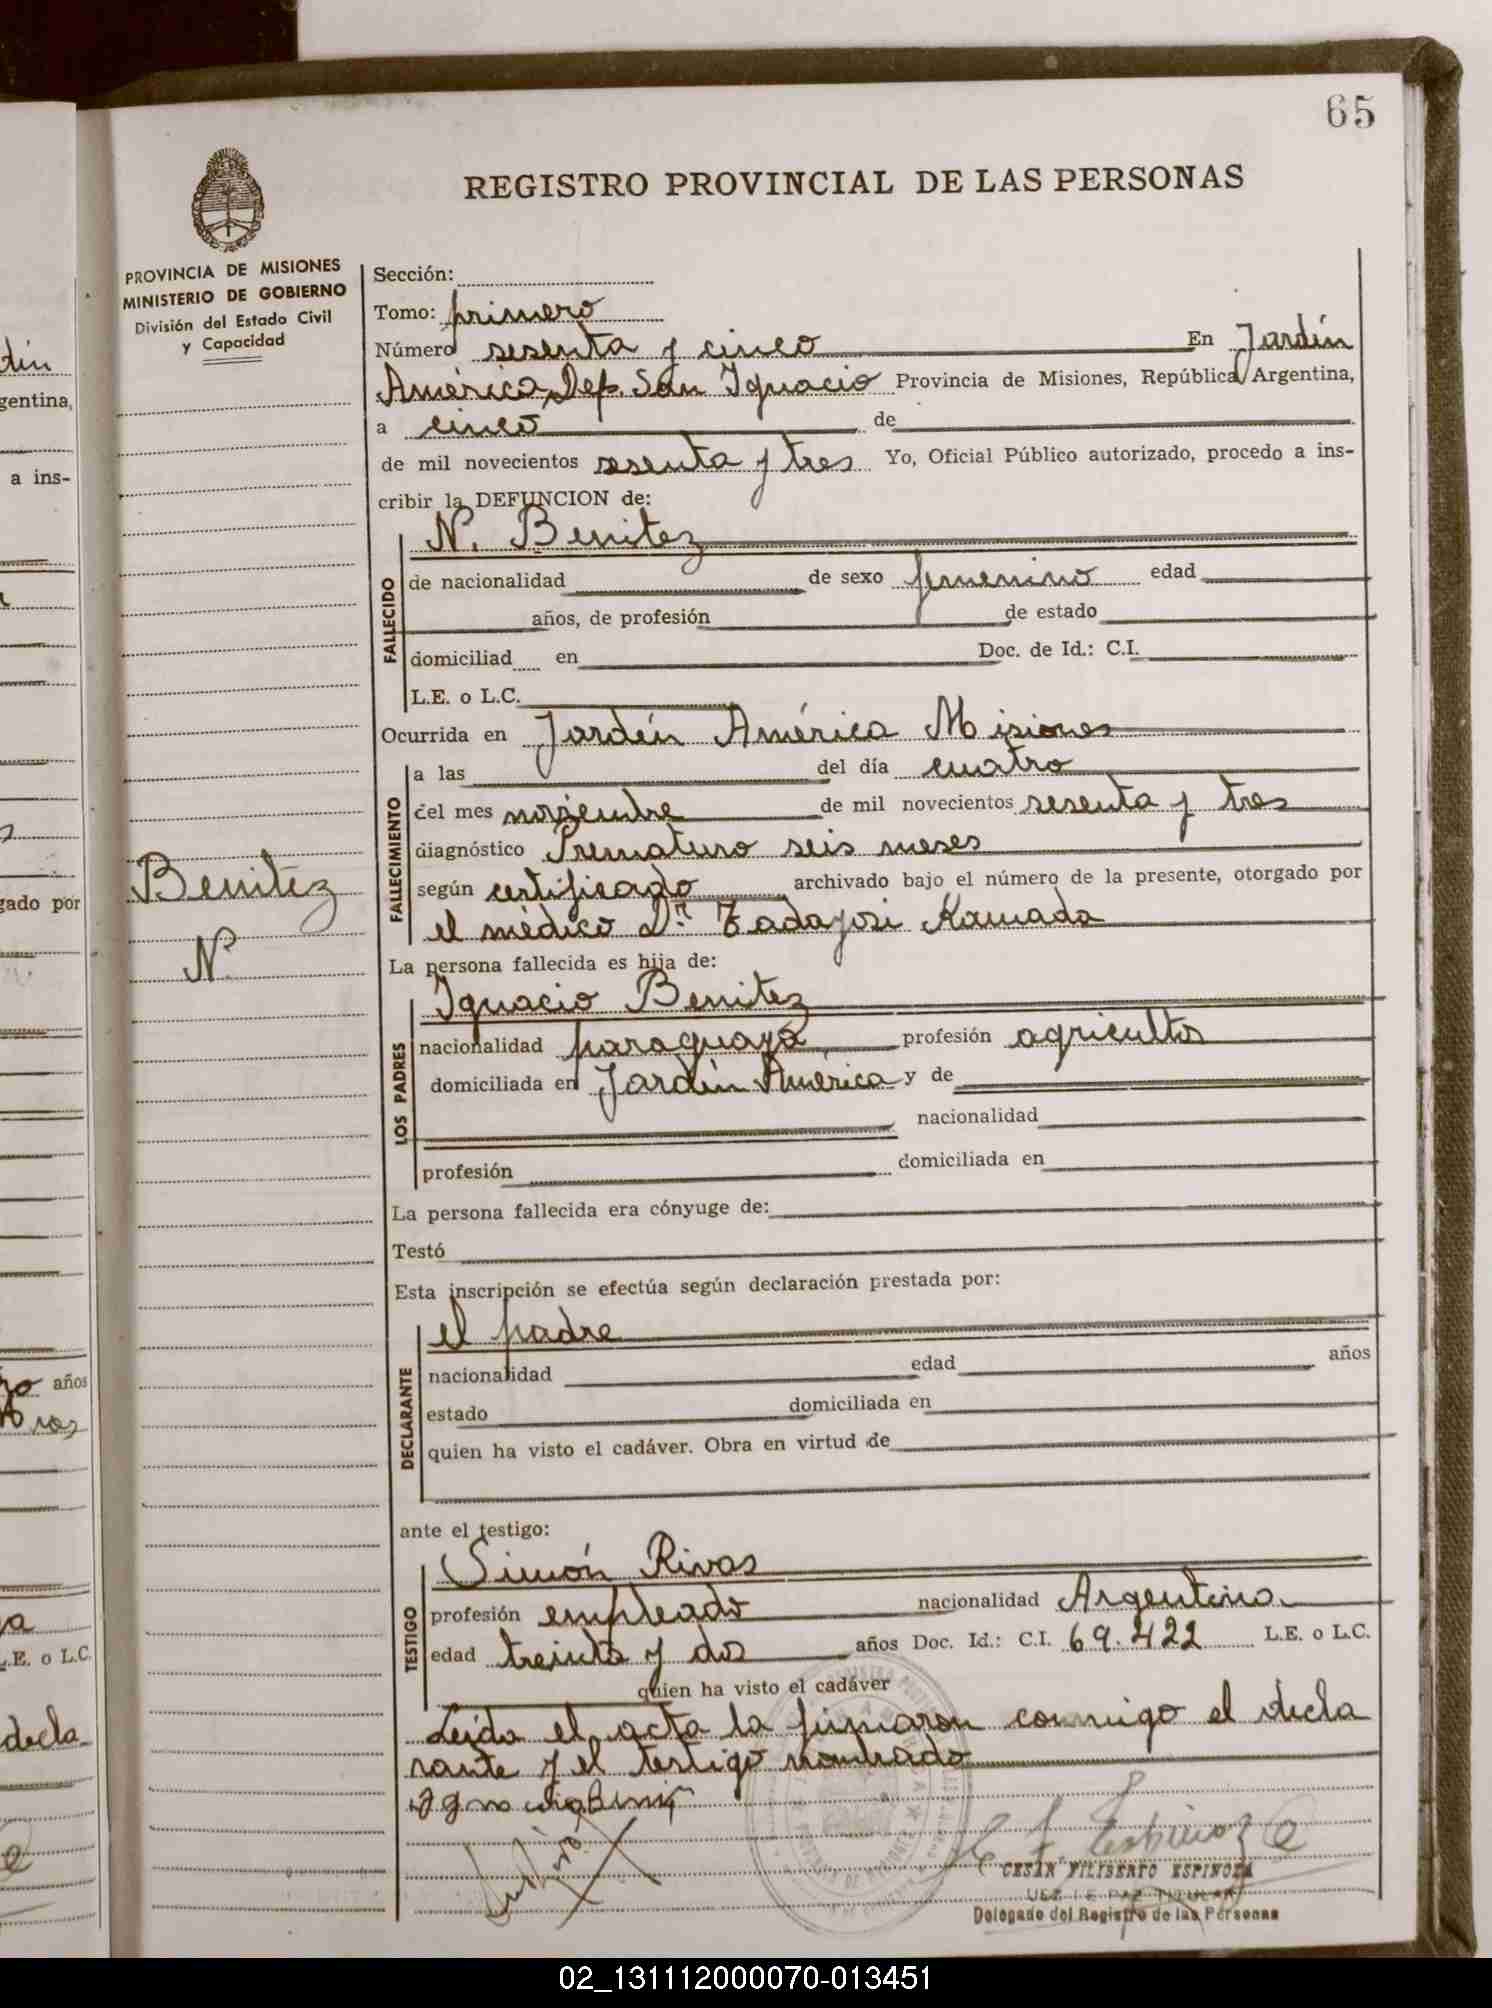 65
REGISTRO PROVINCIAL DE LAS PERSONAS
PROVINCIA DE MISIONES
MINISTERIO DE GOBIERNO
División del Estado Civil
y Capacidad
Sección:
Tomo: primero
Número sesenta y cinco En Jardín
América, Dep. San Ignacio Provincia de Misiones, República Argentina,
a cinco de
de mil novecientos sesenta y tres Yo, Oficial Público autorizado, procedo a ins-
cribir la DEFUNCION de:
FALLECIDO
N. Benitez
de nacionalidad de sexo femenino edad
años, de profesión de estado
domiciliad en Doc. de Id.: C.I.
L.E. o L.C.
Ocurrida en Jardín América Misiones
FALLECIMIENTO
a las del día cuatro
del mes noviembre de mil novecientos sesenta y tres
diagnóstico Prematuro seis meses
según certificado archivado bajo el número de la presente, otorgado por
el médico Dr. Tadayosi Kamada
Benitez
N.
La persona fallecida es hija de:
LOS PADRES
Ignacio Benitez
nacionalidad paraguaya profesión agricultor
domiciliada en Jardín América y de
nacionalidad
profesión domiciliada en
La persona fallecida era cónyuge de:
Testó
Esta inscripción se efectúa según declaración prestada por:
DECLARANTE
el padre
nacionalidad edad años
estado domiciliada en
quien ha visto el cadáver. Obra en virtud de
ante el testigo:
TESTIGO
Simón Rivas
profesión empleado nacionalidad Argentino
edad treinta y dos años Doc. Id.: C.I. 69.422 L.E. o L.C.
quien ha visto el cadáver
Leída el acta la firmaron conmigo el decla
rante y el testigo nombrado
CESAR FILIBERTO ESPINOZA
JUEZ DE PAZ TITULAR
Delegado del Registro de las Personas
dín
gentina,
a ins-
gado por
años
L.E. o L.C.
decla
02_131112000070-013451